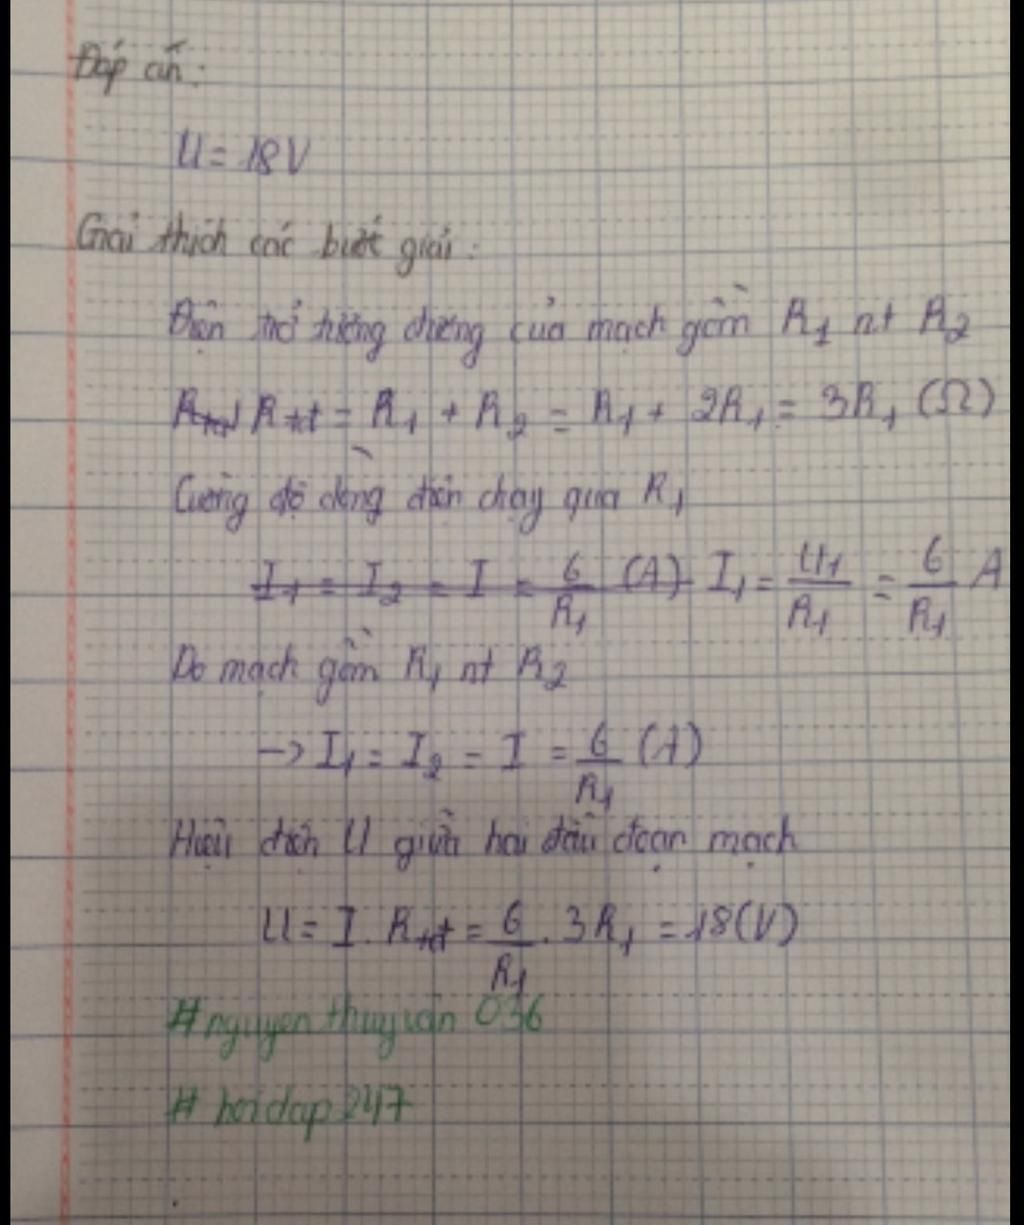 Đáp án:
U = 18V
Giải thích các bước giải:
Điện trở tương đương của mạch gồm R₁ nt R₂
Rtđ Rtđ = R₁ + R₂ = R₁ + 2R₁ = 3R₁ (Ω)
Cường độ dòng điện chạy qua R₁
I₁ = I₂ = I = 6/R₁ (A) I₁ = U₁/R₁ = 6/R₁ A
Do mạch gồm R₁ nt R₂
→ I₁ = I₂ = I = 6/R₁ (A)
Hiệu điện U giữa hai đầu đoạn mạch
U = I. Rtđ = 6/R₁ . 3R₁ = 18(V)
#nguyenthuyvan036
#hoidap247